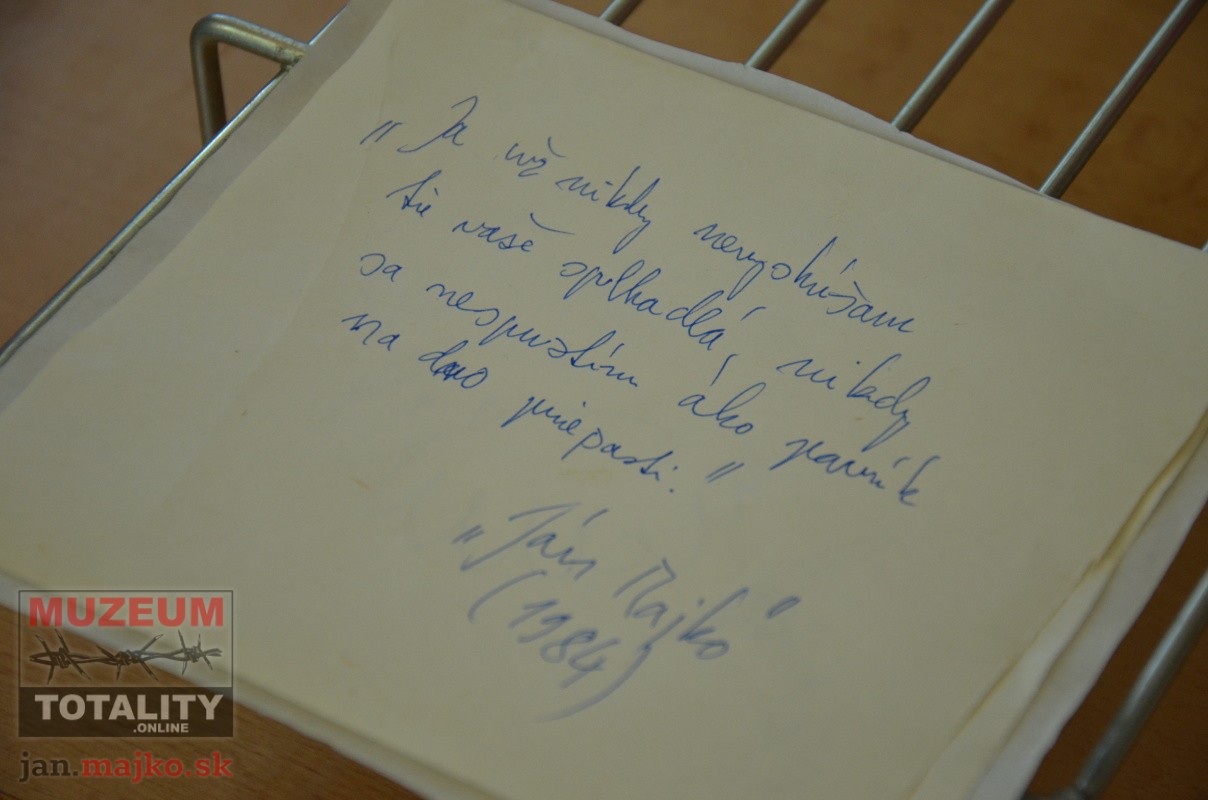 „Ja už nikdy nevyskúšam
tie vaše spolkadlá, nikdy
sa nespustím ako parník
na dno priepasti."
„Ján Majko"
(1984)
MUZEUM
TOTALITY
.ONLINE
jan.majko.sk